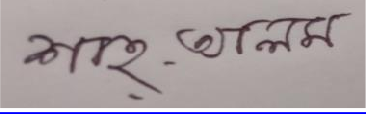 শাহ্-আলম